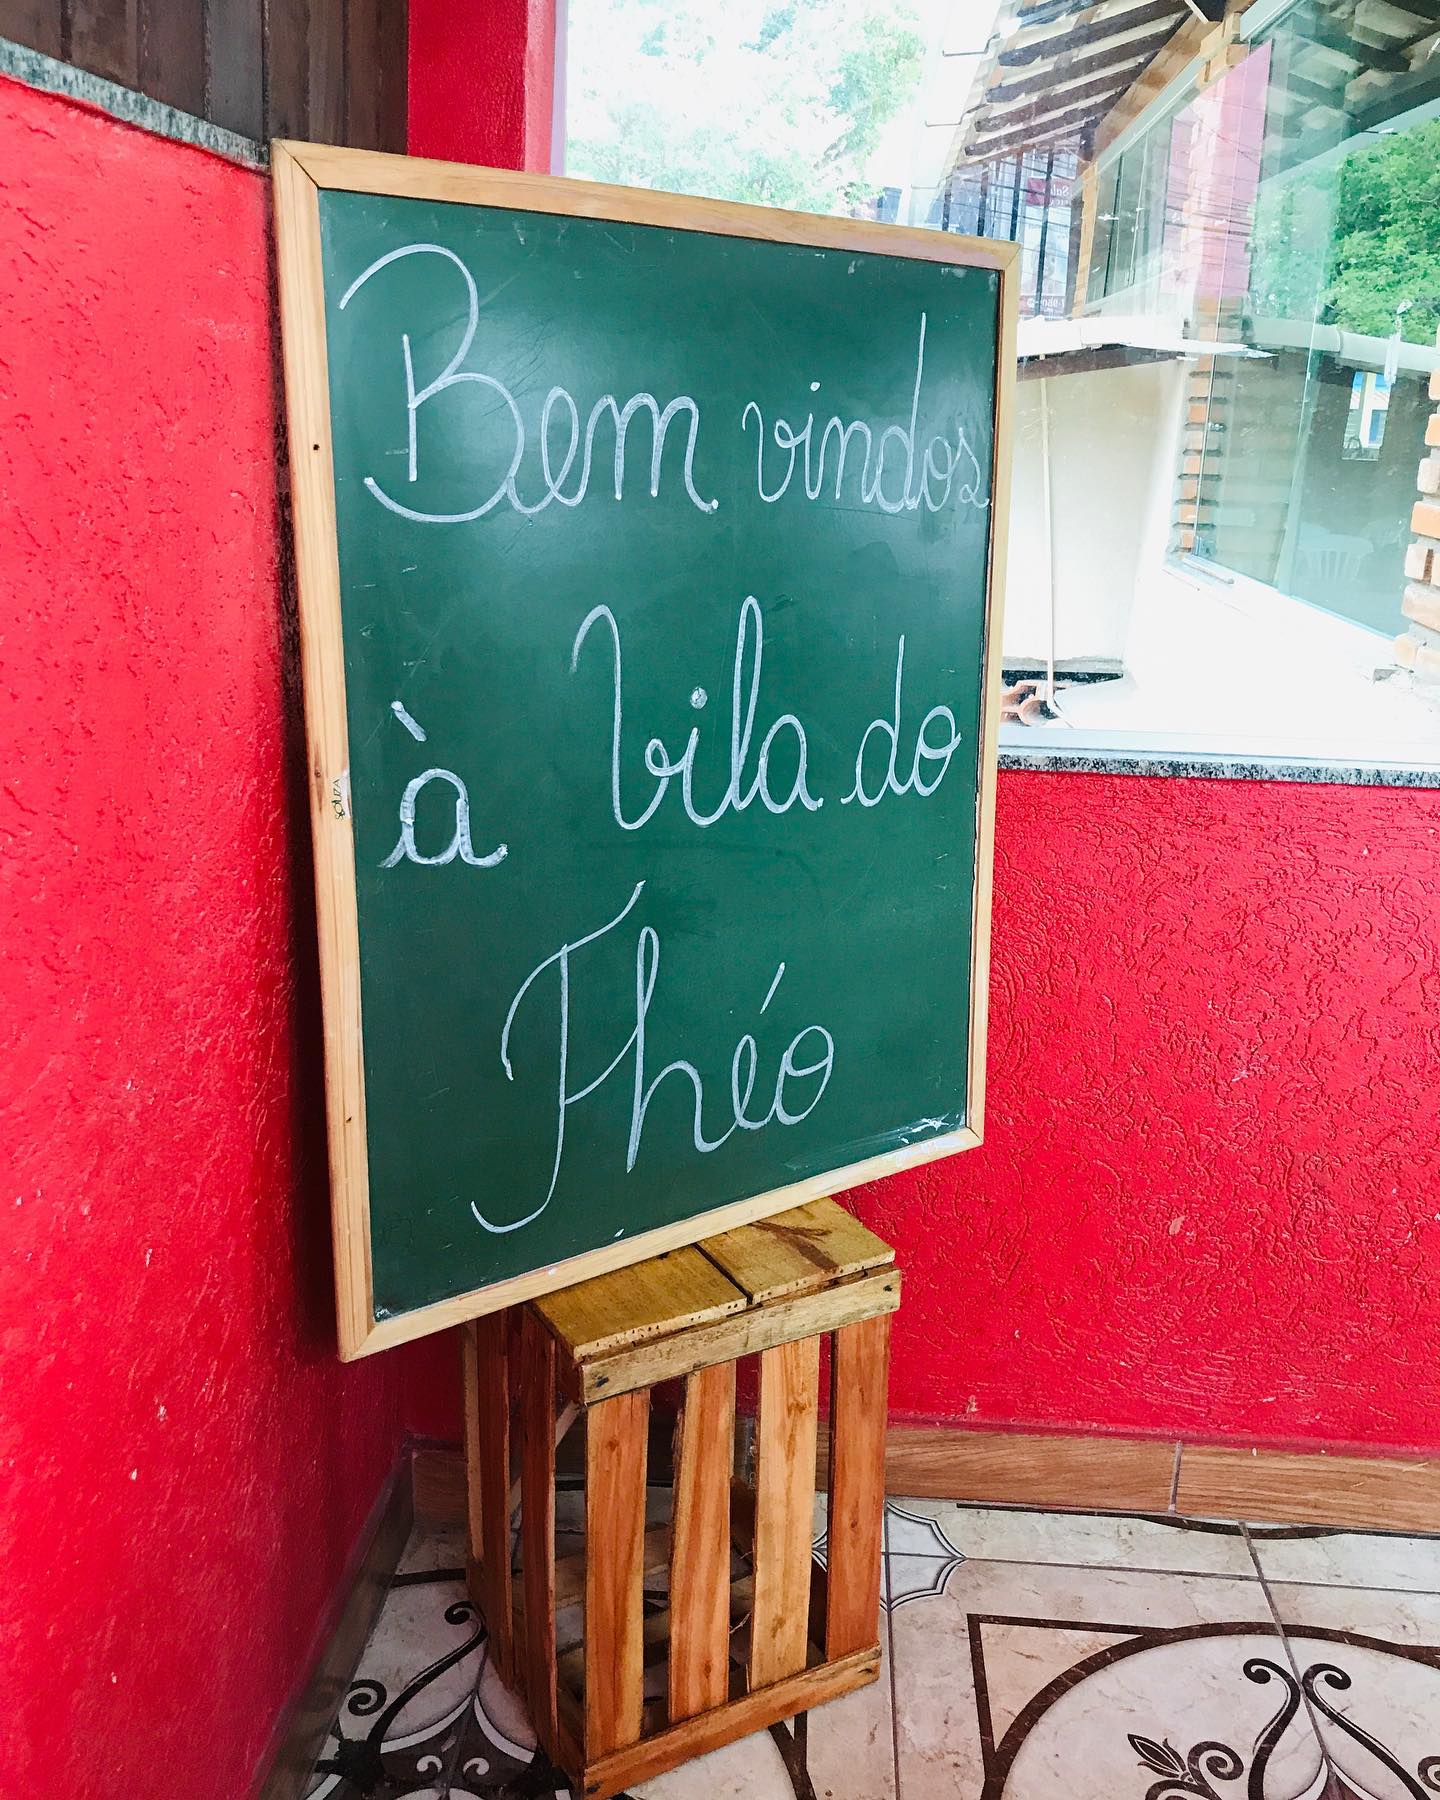 Bem vindos
à Vila do
Théo
SOUZA